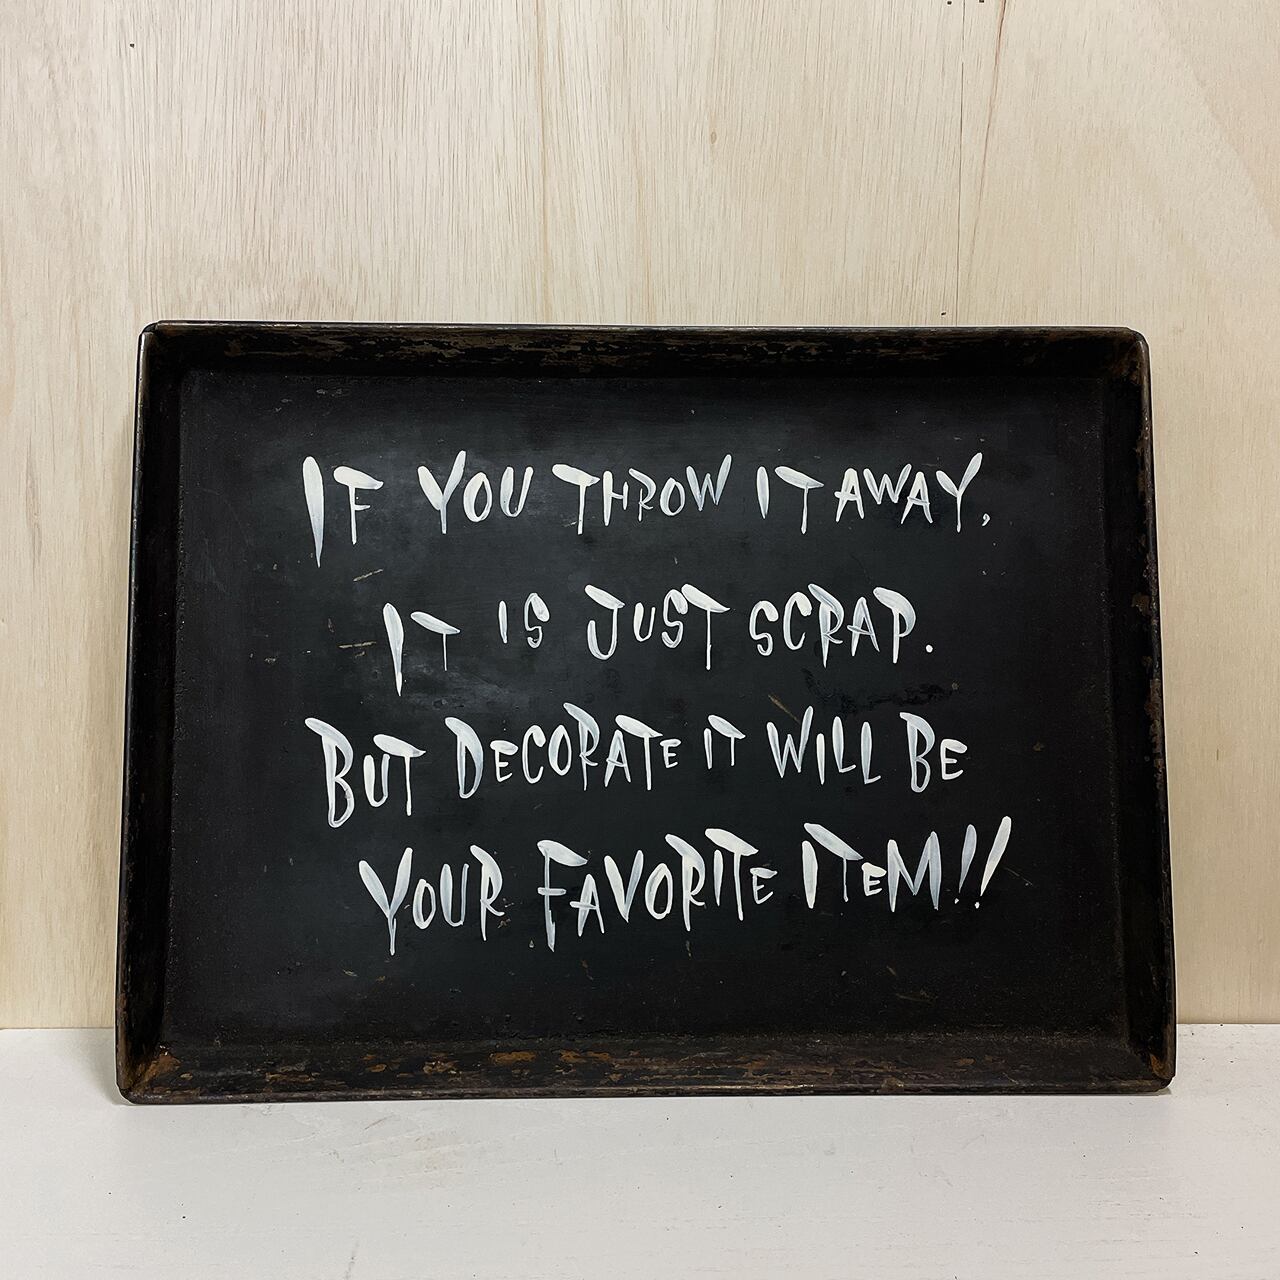 IF YOU THROW IT AWAY,
IT IS JUST SCRAP.
BUT DECORATE IT WILL BE
YOUR FAVORITE ITEM!!